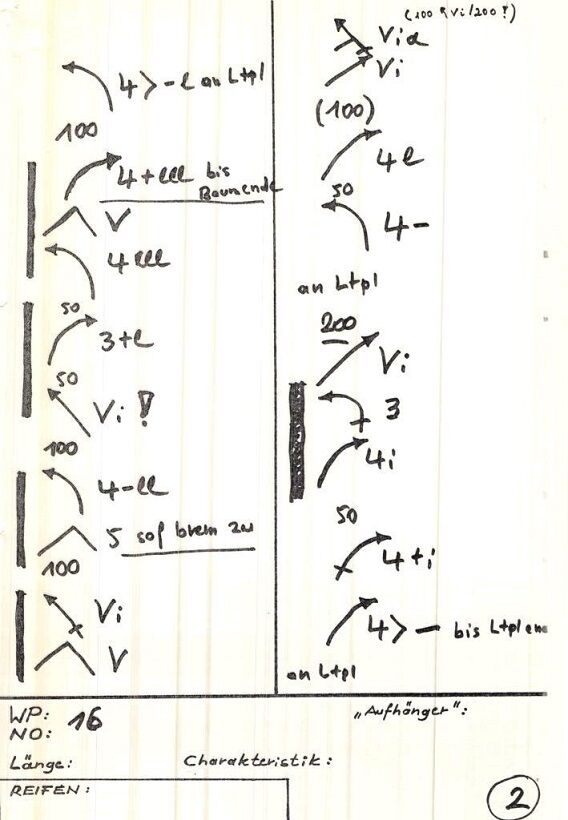 4 > - l an Ltpl
100
4+lll bis
Baumende
V
4 lll
50
3+l
50
Vi !
100
4-ll
5 sof brem zu
100
Vi
V
(100 Vi/200 !)
Via
Vi
(100)
4l
50
4-
an Ltpl
200
Vi
3
4i
50
4+i
4 > - bis Ltpl
an Ltpl
WP: 16
NO:
„Aufhänger":
Länge: Charakteristik:
REIFEN:
2